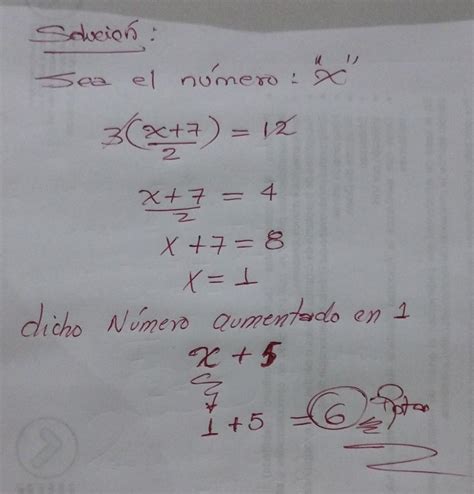 Solución:
Sea el número: "x"
3(x+7/2) = 12
x+7/2 = 4
x+7=8
x = 1
dicho Número aumentado en 1
x + 5
1+5 = 6 Rpta